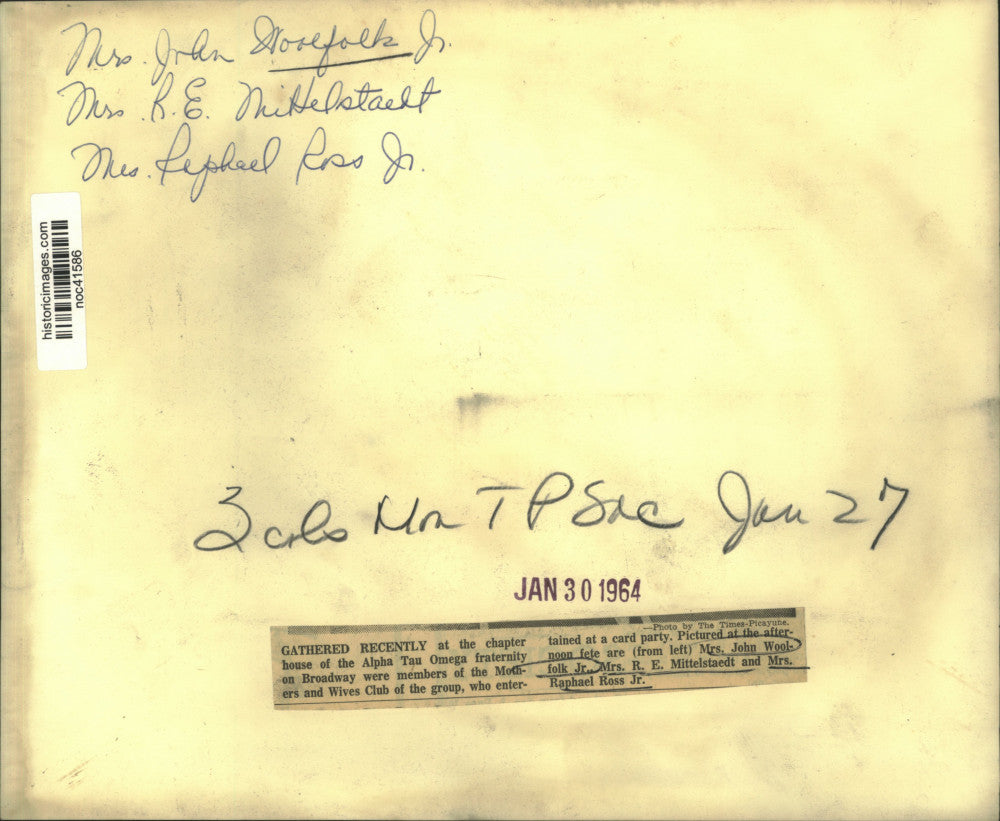 Mrs. John Woolfolk Jr.
Mrs. R.E. Mittelstaedt
Mrs. Raphael Ross Jr.
historicimages.com
noc41586
3 cols Mon TP Soc Jan 27
JAN 30 1964
GATHERED RECENTLY at the chapter
house of the Alpha Tau Omega fraternity
on Broadway were members of the Moth-
ers and Wives Club of the group, who enter-
—Photo by The Times-Picayune.
tained at a card party. Pictured at the after-
noon fete are (from left) Mrs. John Wool-
folk Jr., Mrs. R. E. Mittelstaedt and Mrs.
Raphael Ross Jr.